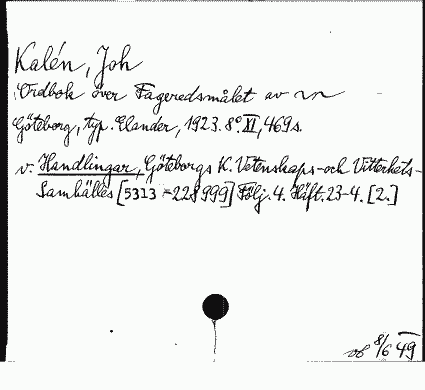 Kalén, Joh
Ordbok över Fageredsmålet av
Göteborg, typ. Elander, 1923. 8°. XI, 469 s.
v. Handlingar, Göteborgs K. Vetenskaps- och Vitterhets-
Samhälles [5313 = 228999] Följ. 4. Häft. 23-4. [2.]
8/6 49